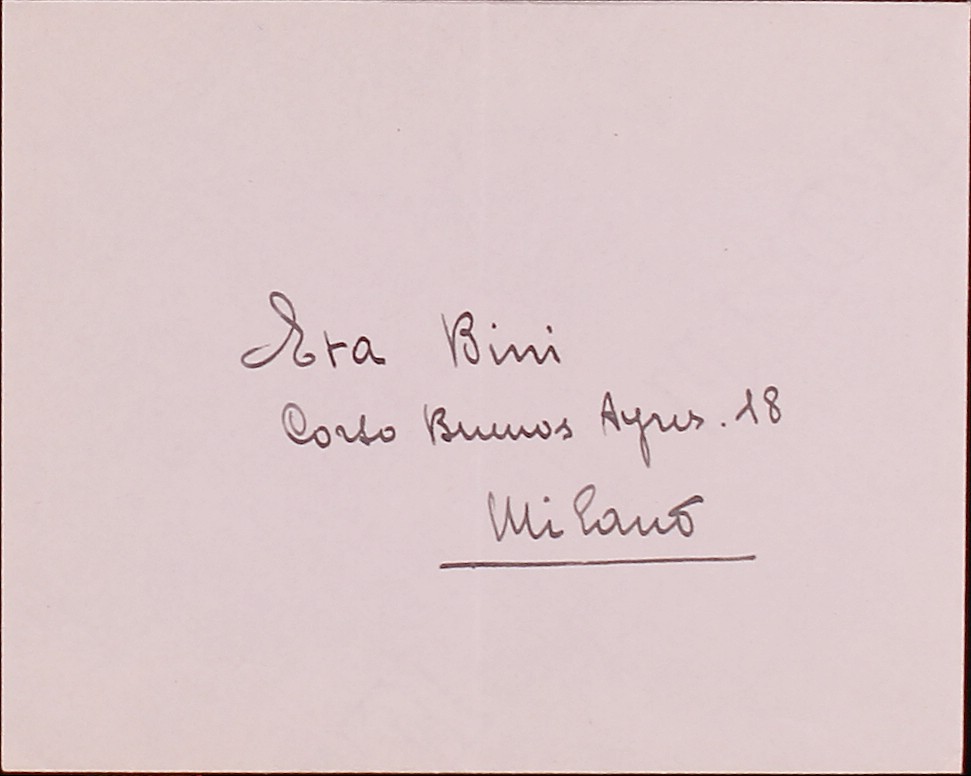 Eva Bini
Corso Buenos Ayres. 18
Milano